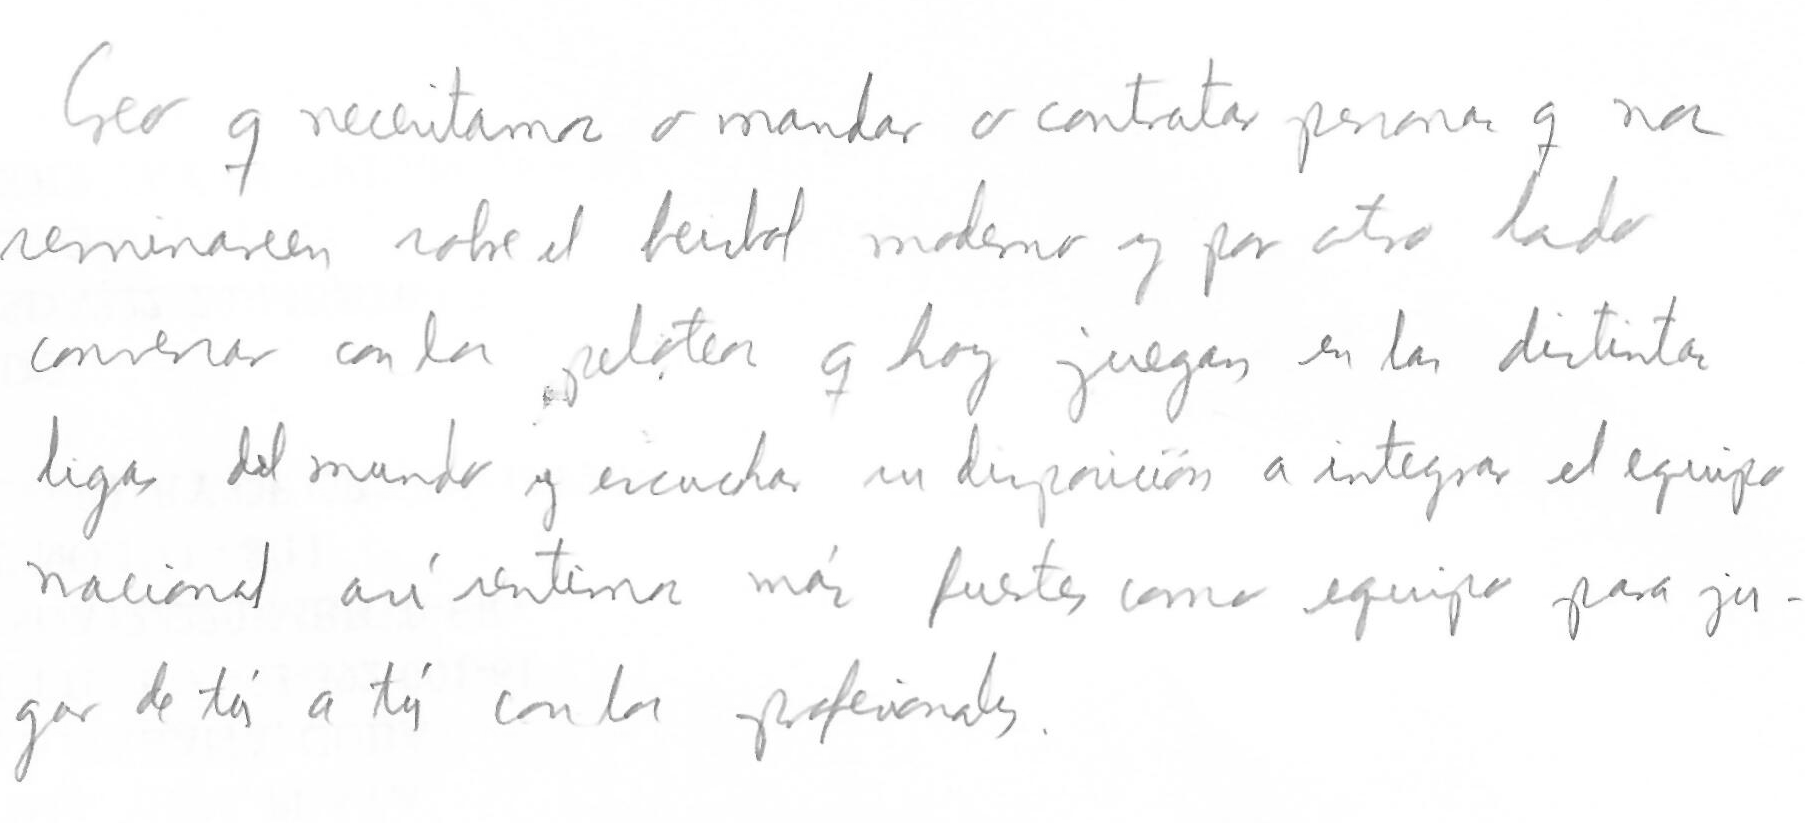 Creo q necesitamos o mandar o contratar personas q nos
seminareen sobre el beisbol moderno y por otro lado
conversar con los peloteros q hoy juegan en las distintas
ligas del mundo y escuchar su disposición a integrar el equipo
nacional así sentirnos más fuertes como equipo para ju-
gar de tú a tú con los profesionales.